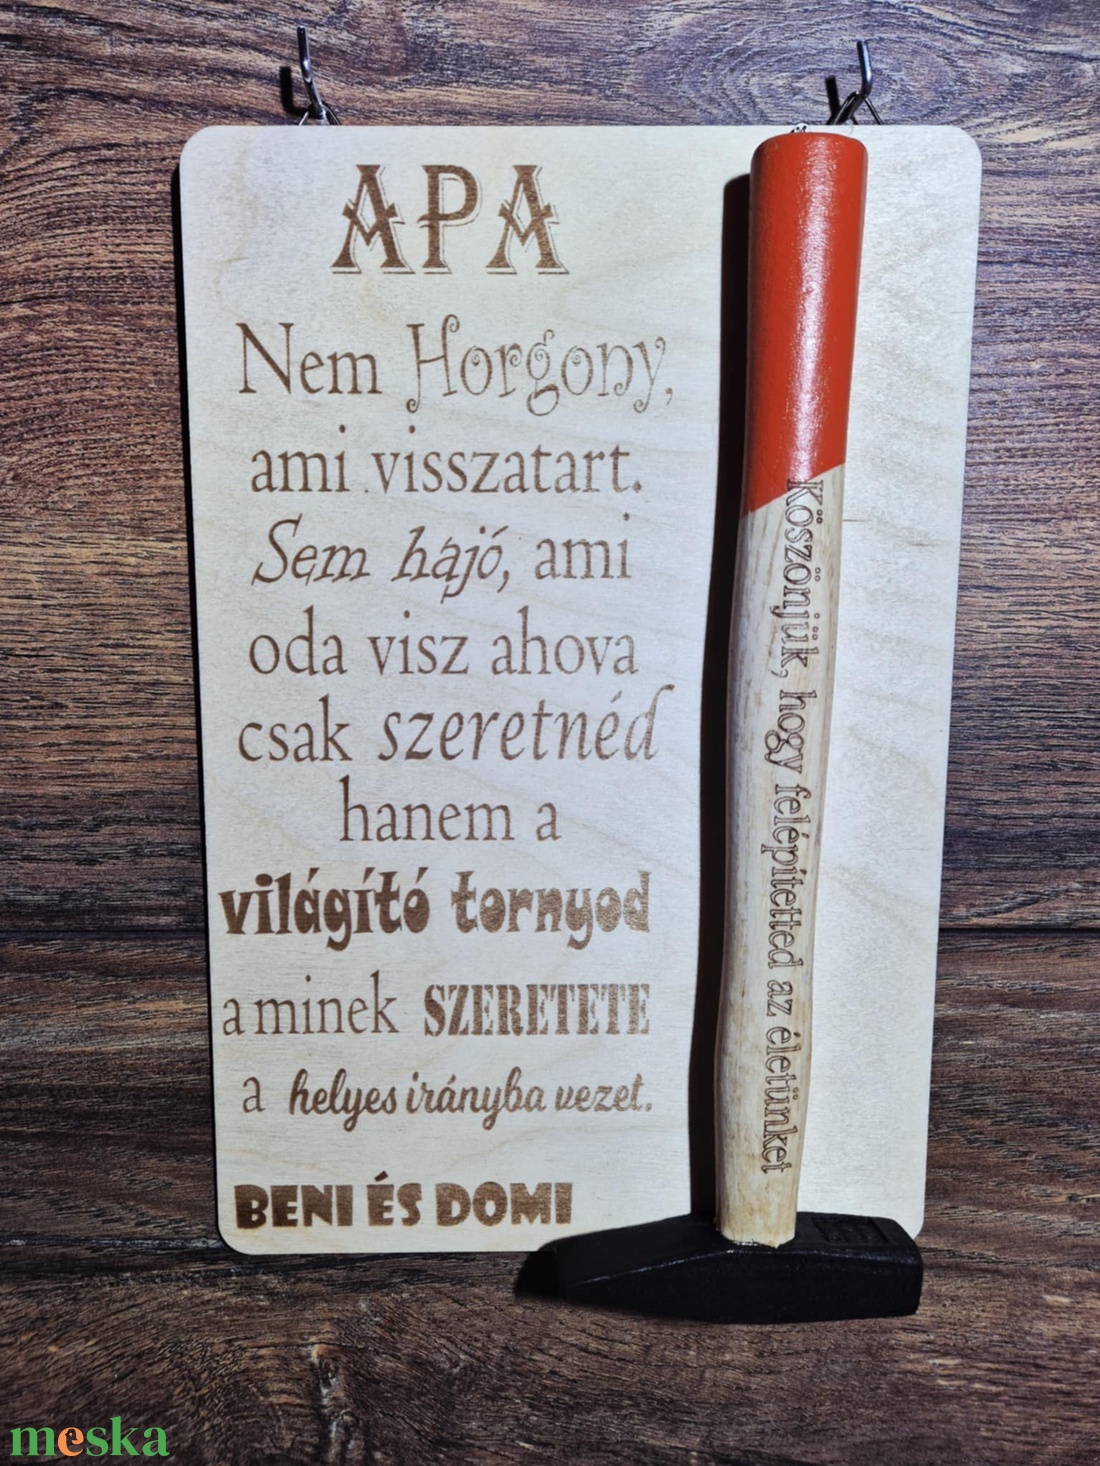 APA
Nem Horgony,
ami visszatart.
Sem hajó, ami
oda visz ahova
csak szeretnéd
hanem a
világító tornyod
aminek SZERETETE
a helyes irányba vezet.
BENI ÉS DOMI
Köszönjük, hogy felépítetted az életünket
meska